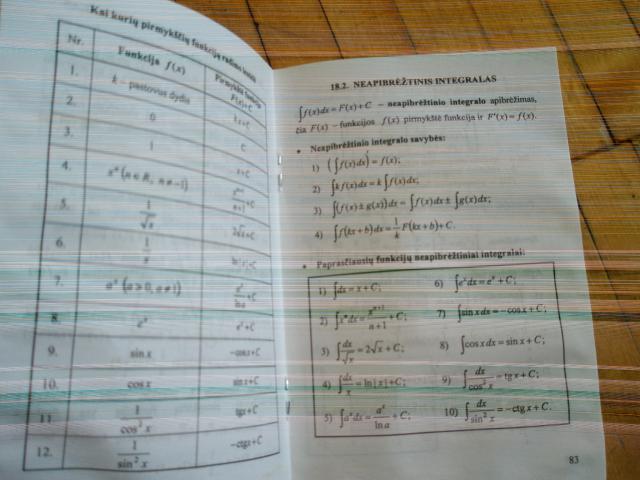 Kai kurių pirmykščių funkcijų radimo lentelė
Nr. Funkcija f(x) Pirmykštė funkcija F(x)+C
1. k – pastovus dydis kx+C
2. 0 C
3. 1 x+C
4. xⁿ (n∈R, n≠-1) xⁿ⁺¹/(n+1)+C
5. 1/√x 2√x+C
6. 1/x ln|x|+C
7. aˣ (a>0, a≠1) aˣ/ln a+C
8. eˣ eˣ+C
9. sin x -cos x+C
10. cos x sin x+C
11 1/cos² x tgx+C
12. 1/sin² x -ctgx+C
18.2. NEAPIBRĖŽTINIS INTEGRALAS
∫f(x)dx = F(x)+C – neapibrėžtinio integralo apibrėžimas,
čia F(x) – funkcijos f(x) pirmykštė funkcija ir F'(x)= f(x).
• Neapibrėžtinio integralo savybės:
1) (∫f(x)dx)' = f(x);
2) ∫kf(x)dx = k∫f(x)dx;
3) ∫(f(x)± g(x))dx = ∫f(x)dx ± ∫g(x)dx;
4) ∫f(kx+b)dx = 1/k F(kx+b)+C.
• Paprasčiausių funkcijų neapibrėžtiniai integralai:
1) ∫dx = x+C;
2) ∫xⁿdx = xⁿ⁺¹/(n+1)+C;
3) ∫dx/√x = 2√x+C;
4) ∫dx/x = ln|x|+C;
5) ∫aˣdx = aˣ/ln a + C;
6) ∫eˣdx = eˣ+C;
7) ∫sin x dx = -cos x+C;
8) ∫cos x dx = sin x+C;
9) ∫dx/cos² x = tgx+C;
10) ∫dx/sin² x = -ctgx+C.
83